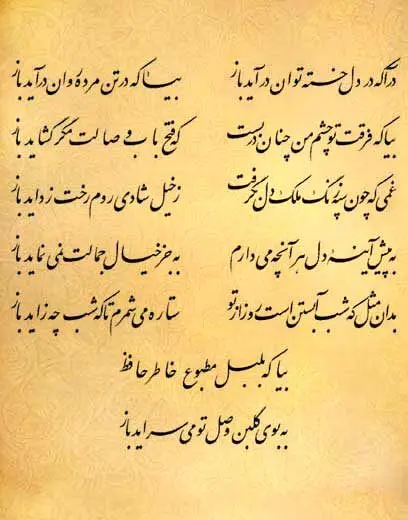 درآ که در دل خسته توان درآید باز بیا که در تن مرده روان درآید باز
بیا که فرقت تو چشم من چنان در بست که فتح باب وصالت مگر گشاید باز
غمی که چون سپه زنگ ملک دل بگرفت ز خیل شادی روم رخت زداید باز
به پیش آینهٔ دل هر آنچه می دارم به جز خیال جمالت نمی نماید باز
بدان مثل که شب آبستن است روز از تو ستاره می شمرم تا که شب چه زاید باز
بیا که بلبل مطبوع خاطر حافظ
به بوی گلبن وصل تو می سراید باز